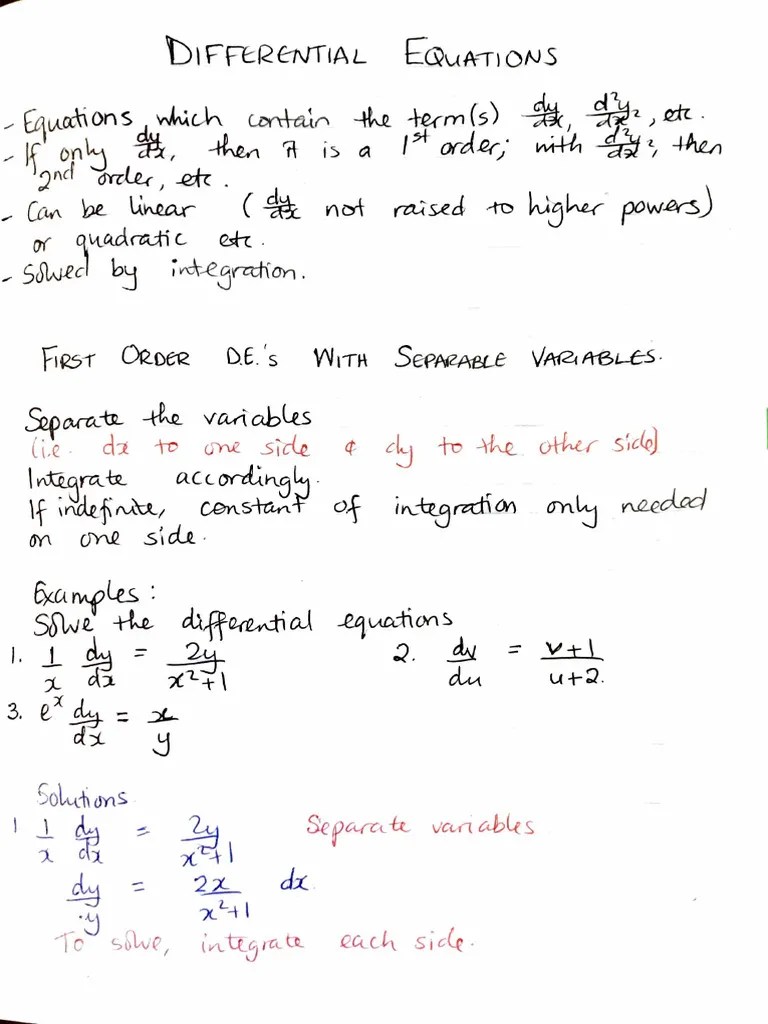 DIFFERENTIAL EQUATIONS
- Equations which contain the term(s) dy/dx, d²y/dx², etc.
- If only dy/dx, then it is a 1st order; with d²y/dx², then
2nd order, etc.
- Can be linear (dy/dx not raised to higher powers)
or quadratic etc.
- Solved by integration.
FIRST ORDER D.E.'s WITH SEPARABLE VARIABLES.
Separate the variables
(i.e. dx to one side & dy to the other side)
Integrate accordingly.
If indefinite, constant of integration only needed
on one side.
Examples:
Solve the differential equations
1. 1/x dy/dx = 2y/x²+1 2. dv/du = v+1/u+2.
3. eˣ dy/dx = x/y
Solutions
1 1/x dy/dx = 2y/x²+1 Separate variables
dy/y = 2x/x²+1 dx
To solve, integrate each side.